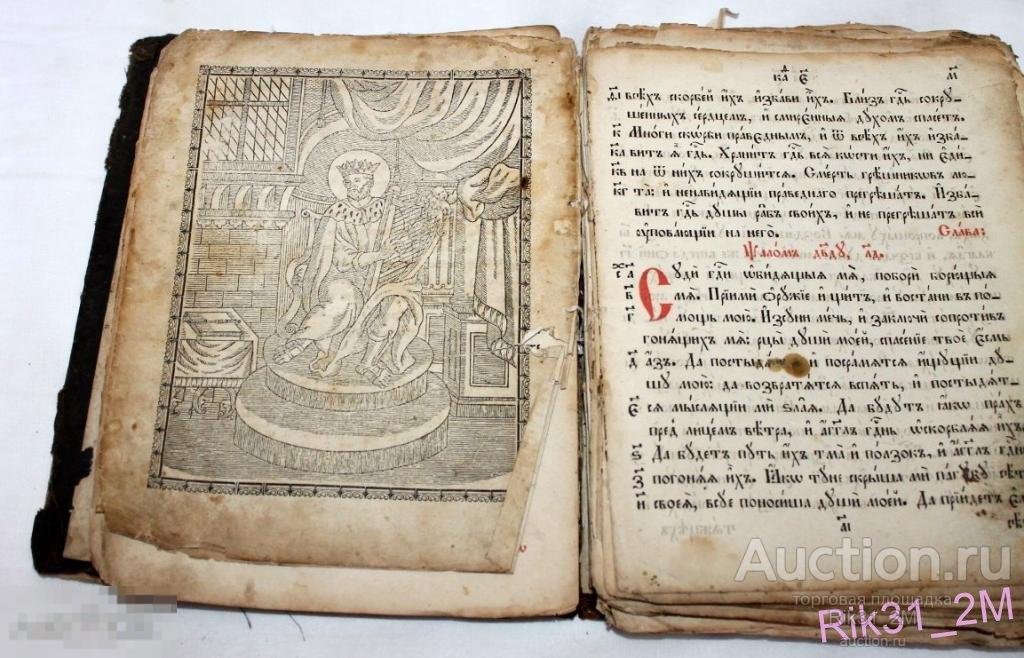 м
ѿ всѣхъ скорбей и҆́хъ и҆збави и҆́хъ. Близъ гдⷭ҇ь сокру-
шенныхъ сердцемъ, и҆ смиренныѧ духомъ спасетъ.
к҃ Многи скорби праведнымъ, и҆ ѿ всѣхъ и҆хъ и҆зба-
ка витъ ѧ҆̀ гдⷭ҇ь. Хранитъ гдⷭ҇ь всѧ кѡсти и҆хъ, ни є҆ди-
кв на ѿ нихъ сокрушитсѧ. Смерть грѣшникѡвъ лю-
кг та: и҆ ненавидѧщіи праведнаго прегрѣшатъ. И҆зба-
витъ гдⷭ҇ь душы рабъ своихъ, и҆ не прегрѣшатъ вси
ѹ҆повающіи на него. Слава:
Ѱаломъ дв҃ду, л҃д.
а҃ Суди гдⷭ҇и ѡ҆бидѧщыѧ мѧ, побори борющыѧ
в҃ мѧ. Пріими ѻ҆ружіе и҆ щитъ, и҆ востани въ по-
г҃ мощь мою. И҆зсуни мечь, и҆ заключи сопротивъ
гонѧщихъ мѧ: рцы души моей, спасеніе твое є҆смь
д҃ а҆зъ. Да постыдѧ и҆ посрамѧтсѧ и҆щущіи ду-
шу мою: да возвратѧтсѧ вспѧть, и҆ постыдѧт-
є҃ сѧ мыслѧщіи ми ѕлаѧ. Да будутъ ꙗ҆кѡ прахъ
пред лицемъ вѣтра, и҆ а҆гг҃лъ гдⷭ҇нь ѡ҆скорблѧѧ и҆хъ.
ѕ҃ Да будетъ путь и҆хъ тма и҆ ползокъ, и҆ а҆гг҃лъ гдⷭ҇нь
з҃ погонѧѧ и҆хъ. Ꙗ҆кѡ туне скрыша ми пагубу сѣти
и҃ своеѧ, всуе поносиша души моей. Да пріидетъ є҆м
Auction.ru
торговая площадка
Rik31_2M
Rik31_2M
auction.ru